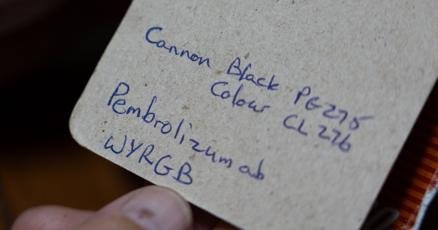 Cannon Black PG275
Colour CL276
Pembrolizumab
WYRGB